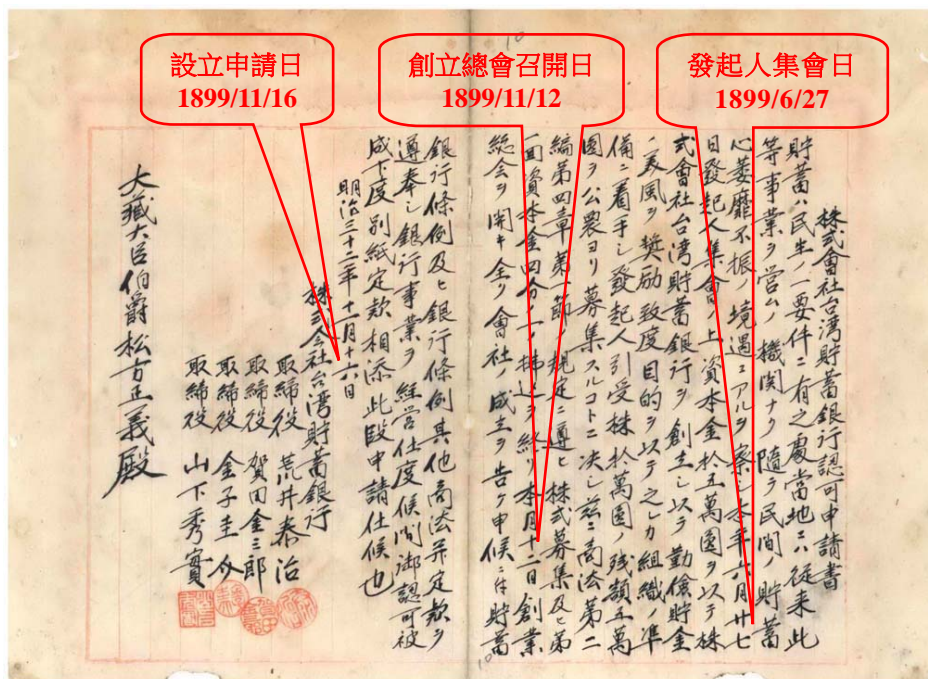 設立申請日
1899/11/16
創立總會召開日
1899/11/12
發起人集會日
1899/6/27
10
株式會社台湾貯蓄銀行認可申請書
貯蓄ハ民生ノ一要件ニ有之處當地ニハ従来此
等事業ヲ営ムノ機関ナク隨テ民間ノ貯蓄
心萎靡不振ノ境遇ニアルヲ案シ本年六月廿七
日發起人集會ノ上資本金拾五萬圓ヲ以テ株
式會社台湾貯蓄銀行ヲ創立シ以テ勤倹貯金
ノ美風ヲ奨励致度目的ヲ以テ之レカ組織ノ準
備ニ着手シ發起人引受株拾萬圓ノ残額五萬
圓ヲ公衆ヨリ募集スルコトニ决シ茲ニ商法第二
編第四章第一節ノ規定ニ遵ヒ株式募集及ヒ第
一回資本金四分ノ一ノ拂込ヲ終リ本月十二日創業
総会ヲ開キ全ク會社ノ成立ヲ告ケ申候ニ付貯蓄
銀行條例及ヒ銀行條例其他商法并定款ヲ
遵奉シ銀行事業ヲ経営仕度候間御認可被
成下度別紙定款相添此段申請仕候也
明治三十二年十一月十六日
株式会社台湾貯蓄銀行
取締役 荒井泰治
取締役 賀田金三郎
取締役 金子圭介
取締役 山下秀實
大藏大臣伯爵松方正義殿
10